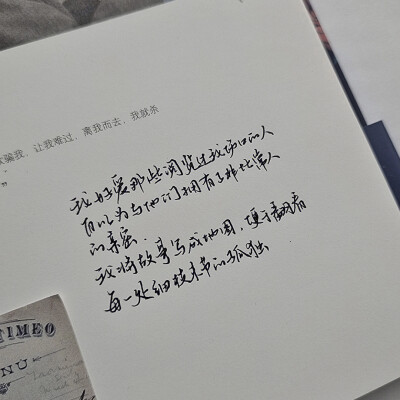 骗我，让我难过，离我而去，我就杀
”
我好爱那些阅览过我伤口的人
自以为与他们拥有了非比常人
的亲密
我将故事写成地图，便于翻看
每一处细枝末节的孤独
TIMEO
NU